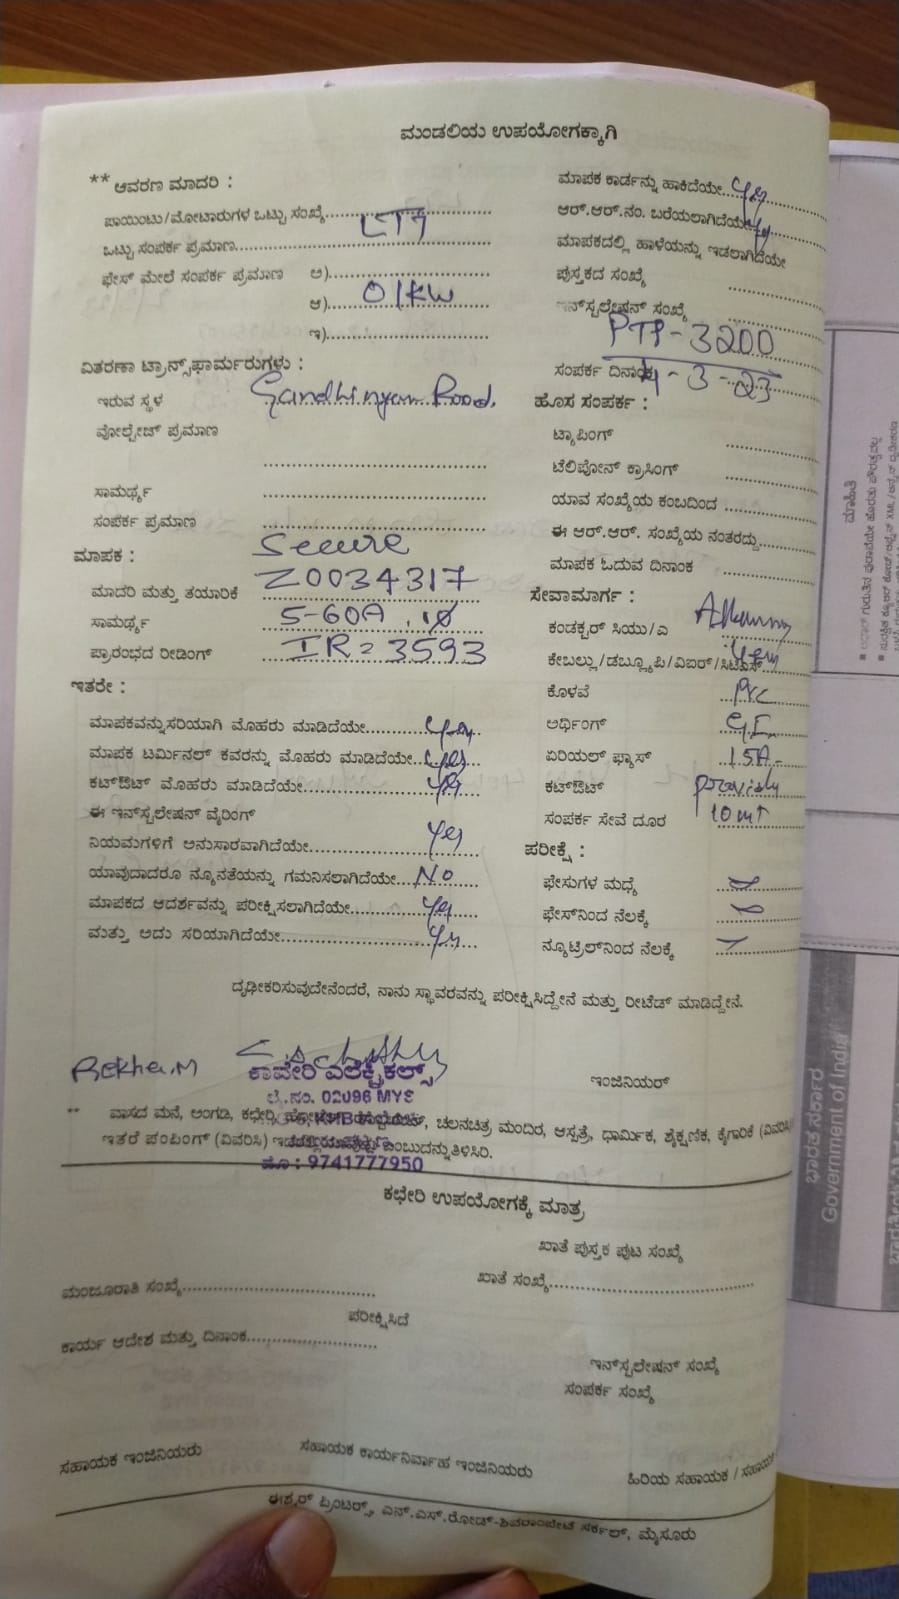 ಮಂಡಲಿಯ ಉಪಯೋಗಕ್ಕಾಗಿ
** ಆವರಣ ಮಾದರಿ :
ಪಾಯಿಂಟು/ಮೋಟಾರುಗಳ ಒಟ್ಟು ಸಂಖ್ಯೆ
ಒಟ್ಟು ಸಂಪರ್ಕ ಪ್ರಮಾಣ
ಫೇಸ್ ಮೇಲೆ ಸಂಪರ್ಕ ಪ್ರಮಾಣ ಅ)
ಆ) 01KW
ಇ)
ವಿತರಣಾ ಟ್ರಾನ್ಸ್‌ಫಾರ್ಮರುಗಳು :
ಇರುವ ಸ್ಥಳ Road.
ವೋಲ್ಟೇಜ್ ಪ್ರಮಾಣ
ಸಾಮರ್ಥ್ಯ
ಸಂಪರ್ಕ ಪ್ರಮಾಣ
ಮಾಪಕ : Secure
ಮಾದರಿ ಮತ್ತು ತಯಾರಿಕೆ Z0034317
ಸಾಮರ್ಥ್ಯ 5-60A. 1Ø
ಪ್ರಾರಂಭದ ರೀಡಿಂಗ್ IR=3593
ಇತರೇ :
ಮಾಪಕವನ್ನುಸರಿಯಾಗಿ ಮೊಹರು ಮಾಡಿದೆಯೇ yes
ಮಾಪಕ ಟರ್ಮಿನಲ್ ಕವರನ್ನು ಮೊಹರು ಮಾಡಿದೆಯೇ yes
ಕಟ್‌ಔಟ್ ಮೊಹರು ಮಾಡಿದೆಯೇ yes
ಈ ಇನ್‌ಸ್ಟಲೇಷನ್ ವೈರಿಂಗ್
ನಿಯಮಗಳಿಗೆ ಅನುಸಾರವಾಗಿದೆಯೇ yes
ಯಾವುದಾದರೂ ನ್ಯೂನತೆಯನ್ನು ಗಮನಿಸಲಾಗಿದೆಯೇ No
ಮಾಪಕದ ಆದರ್ಶವನ್ನು ಪರೀಕ್ಷಿಸಲಾಗಿದೆಯೇ yes
ಮತ್ತು ಅದು ಸರಿಯಾಗಿದೆಯೇ yes
ಮಾಪಕ ಕಾರ್ಡನ್ನು ಹಾಕಿದೆಯೇ yes
ಆರ್.ಆರ್.ನಂ. ಬರೆಯಲಾಗಿದೆಯೇ yes
ಮಾಪಕದಲ್ಲಿ ಹಾಳೆಯನ್ನು ಇಡಲಾಗಿದೆಯೇ
ಪುಸ್ತಕದ ಸಂಖ್ಯೆ
ಇನ್‌ಸ್ಟಲೇಷನ್ ಸಂಖ್ಯೆ
3200
ಸಂಪರ್ಕ ದಿನಾಂಕ 4-3-23
ಹೊಸ ಸಂಪರ್ಕ :
ಟ್ಯಾಪಿಂಗ್
ಟೆಲಿಫೋನ್ ಕ್ರಾಸಿಂಗ್
ಯಾವ ಸಂಖ್ಯೆಯ ಕಂಬದಿಂದ
ಈ ಆರ್.ಆರ್. ಸಂಖ್ಯೆಯ ನಂತರದ್ದು
ಮಾಪಕ ಓದುವ ದಿನಾಂಕ
ಸೇವಾಮಾರ್ಗ :
ಕಂಡಕ್ಟರ್ ಸಿಯು/ಎ
ಕೇಬಲ್ಲು/ಡಬ್ಲ್ಯೂಪಿ/ವಿಐರ್/ಸಿಟಿಎಸ್
ಕೊಳವೆ PVC
ಅರ್ಥಿಂಗ್ G.I.
ಏರಿಯಲ್ ಫ್ಯೂಸ್ 15A
ಕಟ್‌ಔಟ್
ಸಂಪರ್ಕ ಸೇವೆ ದೂರ 10mt
ಪರೀಕ್ಷೆ :
ಫೇಸುಗಳ ಮಧ್ಯೆ
ಫೇಸ್‌ನಿಂದ ನೆಲಕ್ಕೆ
ನ್ಯೂಟ್ರಲ್‌ನಿಂದ ನೆಲಕ್ಕೆ
ದೃಢೀಕರಿಸುವುದೇನೆಂದರೆ, ನಾನು ಸ್ಥಾವರವನ್ನು ಪರೀಕ್ಷಿಸಿದ್ದೇನೆ ಮತ್ತು ರೀಟೆಡ್ ಮಾಡಿದ್ದೇನೆ.
Rekha.M
ಕಾವೇರಿ ಎಲೆಕ್ಟ್ರಿಕಲ್ಸ್
ಲೈ.ನಂ. 02096 MYS
ಇಂಜಿನಿಯರ್
** ವಾಸದ ಮನೆ, ಅಂಗಡಿ, ಕಛೇರಿ, ಚಲನಚಿತ್ರ ಮಂದಿರ, ಆಸ್ಪತ್ರೆ, ಧಾರ್ಮಿಕ, ಶೈಕ್ಷಣಿಕ, ಕೈಗಾರಿಕೆ (ವಿವರಿಸಿ)
ಇತರೆ ಪಂಪಿಂಗ್ (ವಿವರಿಸಿ) ಎಂಬುದನ್ನು ತಿಳಿಸಿರಿ.
ಮೊ : 9741777950
ಕಛೇರಿ ಉಪಯೋಗಕ್ಕೆ ಮಾತ್ರ
ಖಾತೆ ಪುಸ್ತಕ ಪುಟ ಸಂಖ್ಯೆ
ಮಂಜೂರಾತಿ ಸಂಖ್ಯೆ
ಖಾತೆ ಸಂಖ್ಯೆ
ಪರೀಕ್ಷಿಸಿದೆ
ಕಾರ್ಯ ಆದೇಶ ಮತ್ತು ದಿನಾಂಕ
ಇನ್‌ಸ್ಟಲೇಷನ್ ಸಂಖ್ಯೆ
ಸಂಪರ್ಕ ಸಂಖ್ಯೆ
ಸಹಾಯಕ ಇಂಜಿನಿಯರು
ಸಹಾಯಕ ಕಾರ್ಯನಿರ್ವಾಹ ಇಂಜಿನಿಯರು
ಹಿರಿಯ ಸಹಾಯಕ / ಸಹಾಯಕ
ಈಶ್ವರ್ ಪ್ರಿಂಟರ್ಸ್, ಎನ್.ಎಸ್.ರೋಡ್-ಶಿವರಾಂಪೇಟೆ ಸರ್ಕಲ್, ಮೈಸೂರು
ಮಾಹಿತಿ
ಭಾರತ ಸರ್ಕಾರ
Government of India